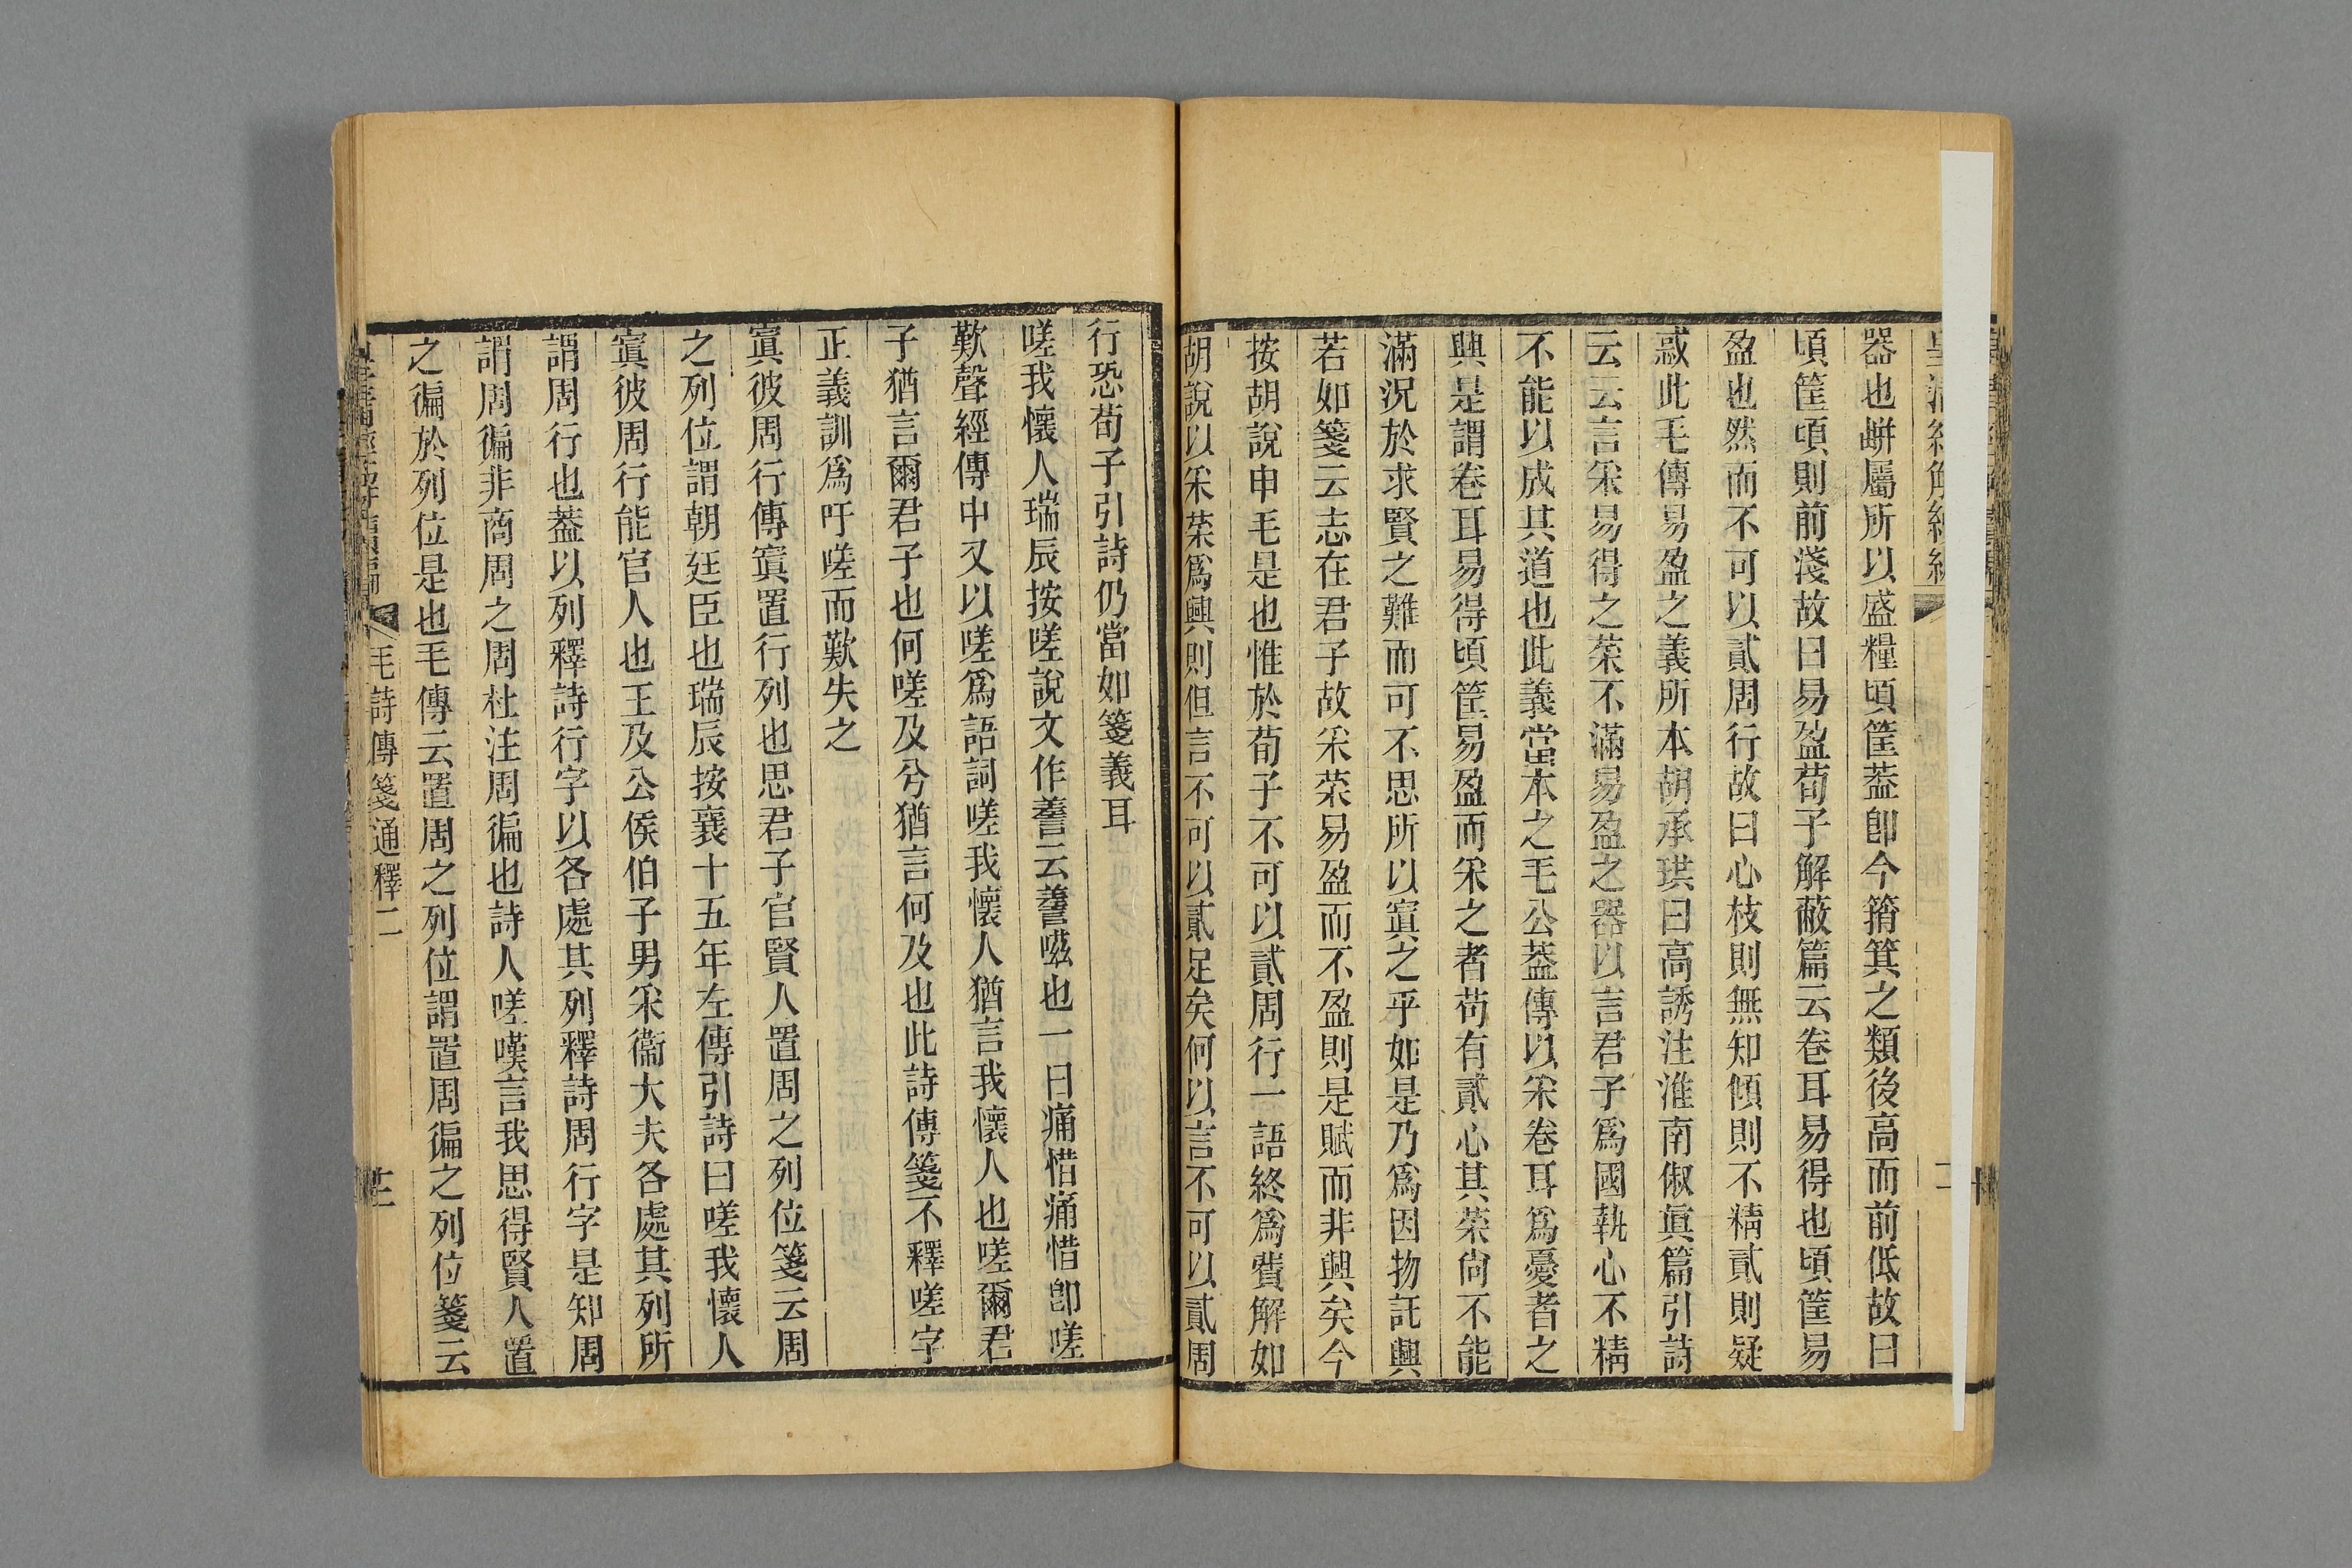 器也缾屬所以盛糧頃筐葢卽今箱箕之類後高而前低故曰
頃筐頃則前淺故曰易盈荀子解蔽篇云卷耳易得也頃筐易
盈也然而不可以貳周行故曰心枝則無知傾則不精貳則疑
惑此毛傳易盈之義所本胡承珙曰高誘注淮南俶眞篇引詩
云云言采易得之菜不滿易盈之器以言君子爲國執心不精
不能以成其道也此義當本之毛公葢傳以采卷耳爲憂者之
興是謂卷耳易得頃筐易盈而采之者苟有貳心其菜尙不能
滿況於求賢之難而可不思所以寘之乎如是乃爲因物託興
若如箋云志在君子故采菜易盈而不盈則是賦而非興矣今
按胡說申毛是也惟於荀子不可以貳周行一語終爲費解如
胡說以采菜爲興則但言不可以貳足矣何以言不可以貳周
行恐荀子引詩仍當如箋義耳
嗟我懷人瑞辰按嗟說文作䜅云䜅嗞也一曰痛惜痛惜卽嗟
歎聲經傳中又以嗟爲語詞嗟我懷人猶言我懷人也嗟爾君
子猶言爾君子也何嗟及兮猶言何及也此詩傳箋不釋嗟字
正義訓爲吁嗟而歎失之
寘彼周行傳寘置行列也思君子官賢人置周之列位箋云周
之列位謂朝廷臣也瑞辰按襄十五年左傳引詩曰嗟我懷人
寘彼周行能官人也王及公侯伯子男采衞大夫各處其列所
謂周行也葢以列釋詩行字以各處其列釋詩周行字是知周
謂周徧非商周之周杜注周徧也詩人嗟嘆言我思得賢人置
之徧於列位是也毛傳云置周之列位謂置周徧之列位箋云
毛詩傳箋通釋二